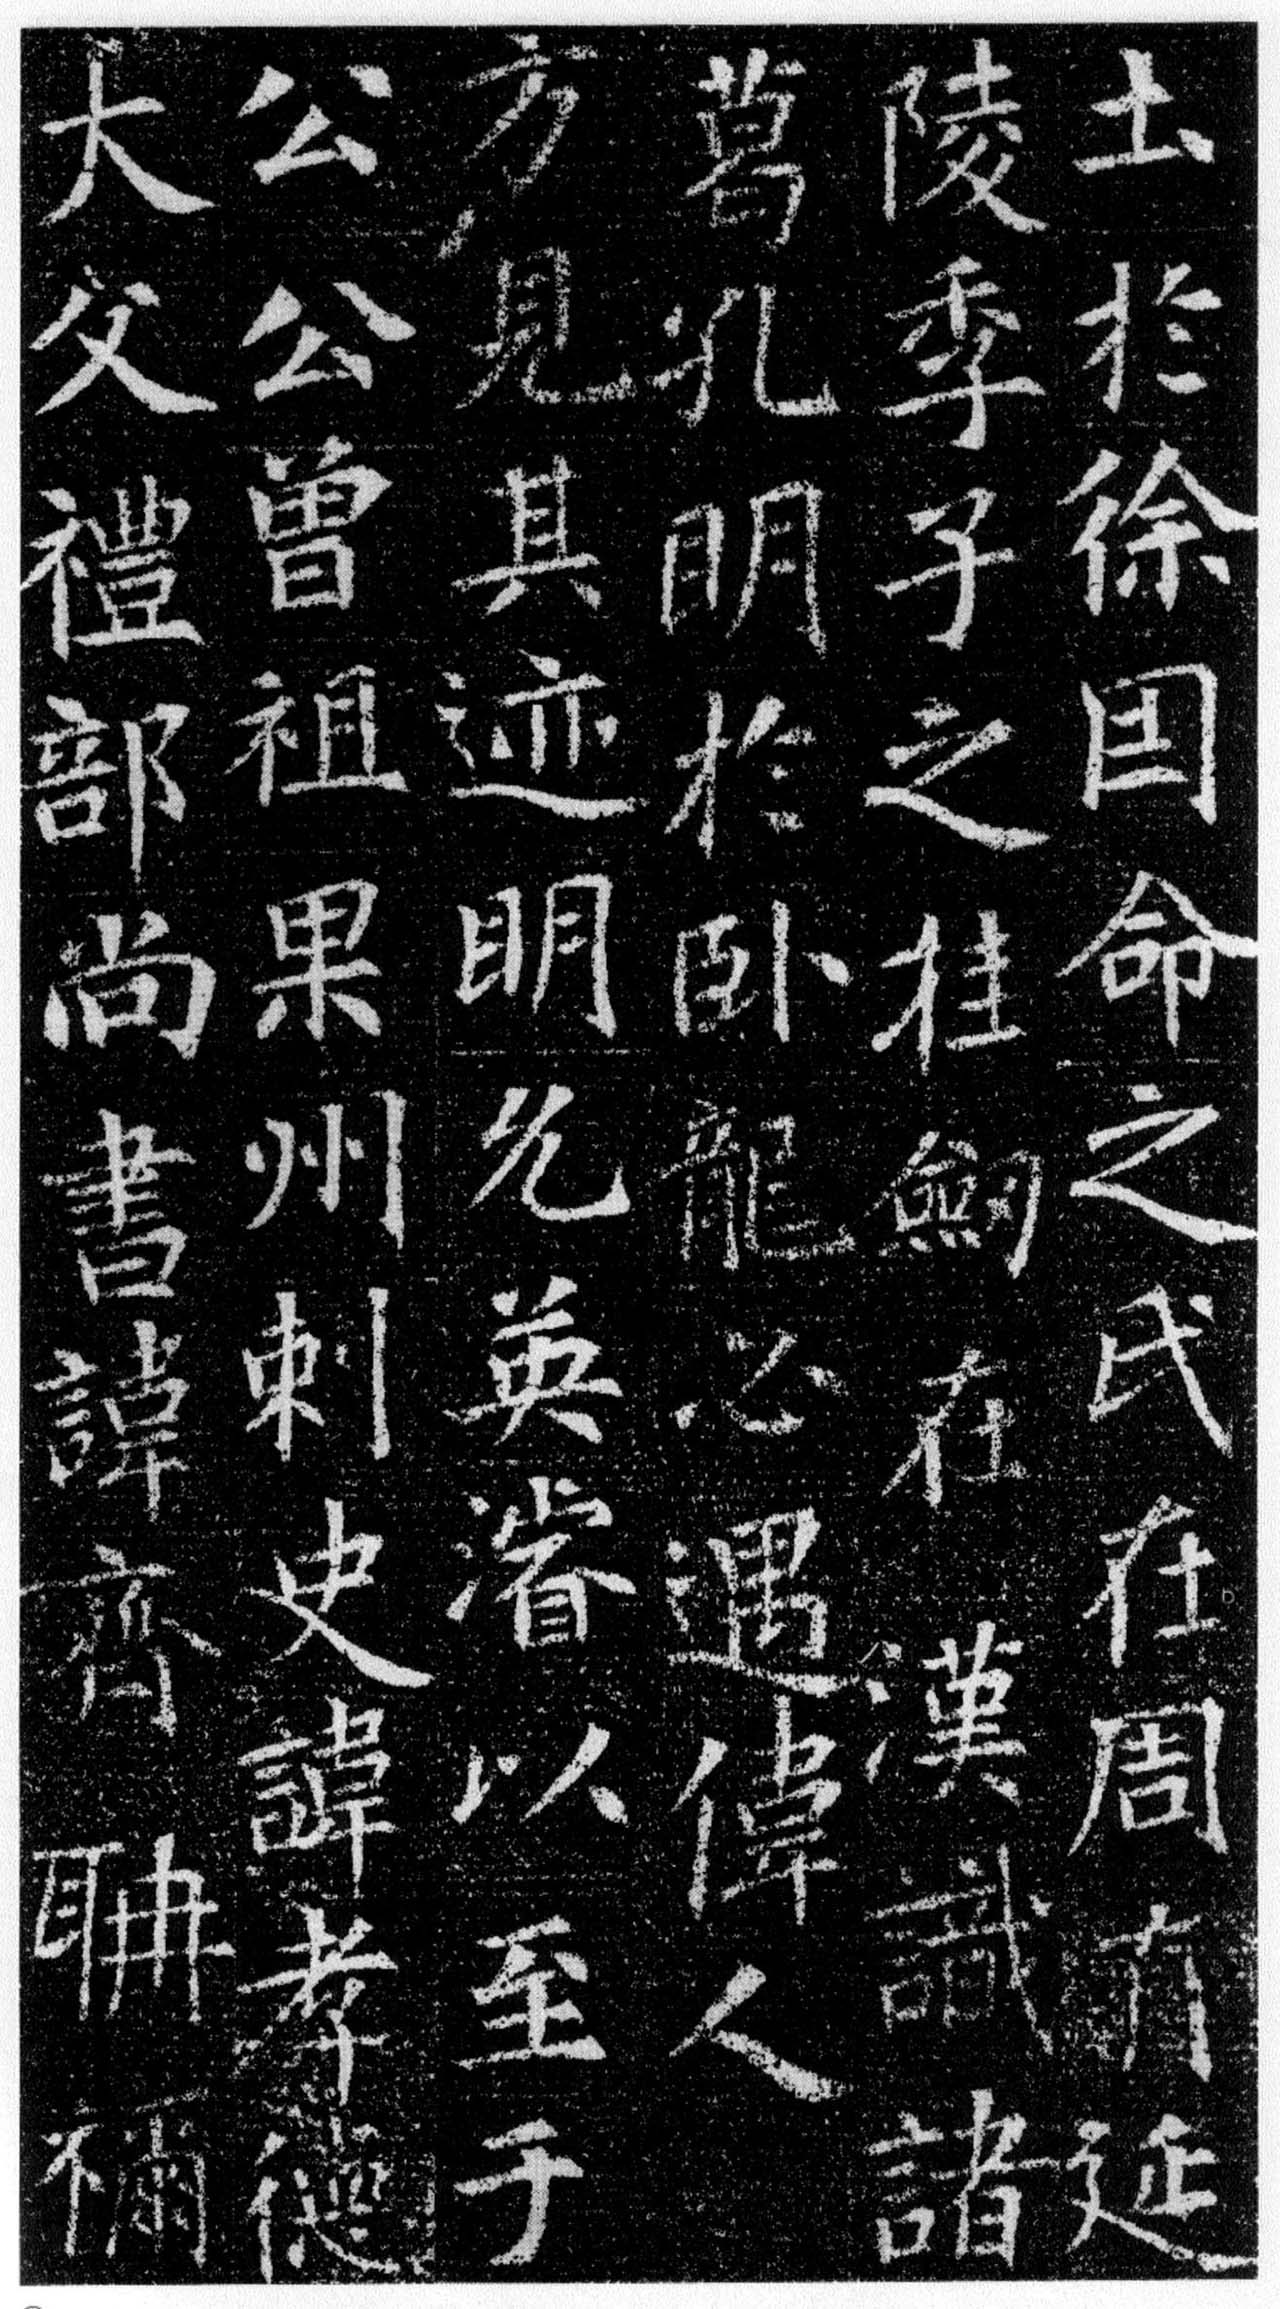 土於徐囙命之氏在周有延
陵季子之挂劔在漢識諸
葛孔明於卧龍必遇偉人
方見其迹明允英濬以至于
公公曾祖果州刺史諱孝德
大父禮部尚書諱齊聃禰